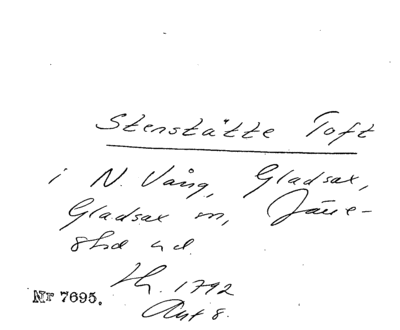 Stenstätte Toft
i N. Vång, Gladsax,
Gladsax sn, Järre-
stad hd.
Lh. 1792
Akt 8.
Nr 7695.